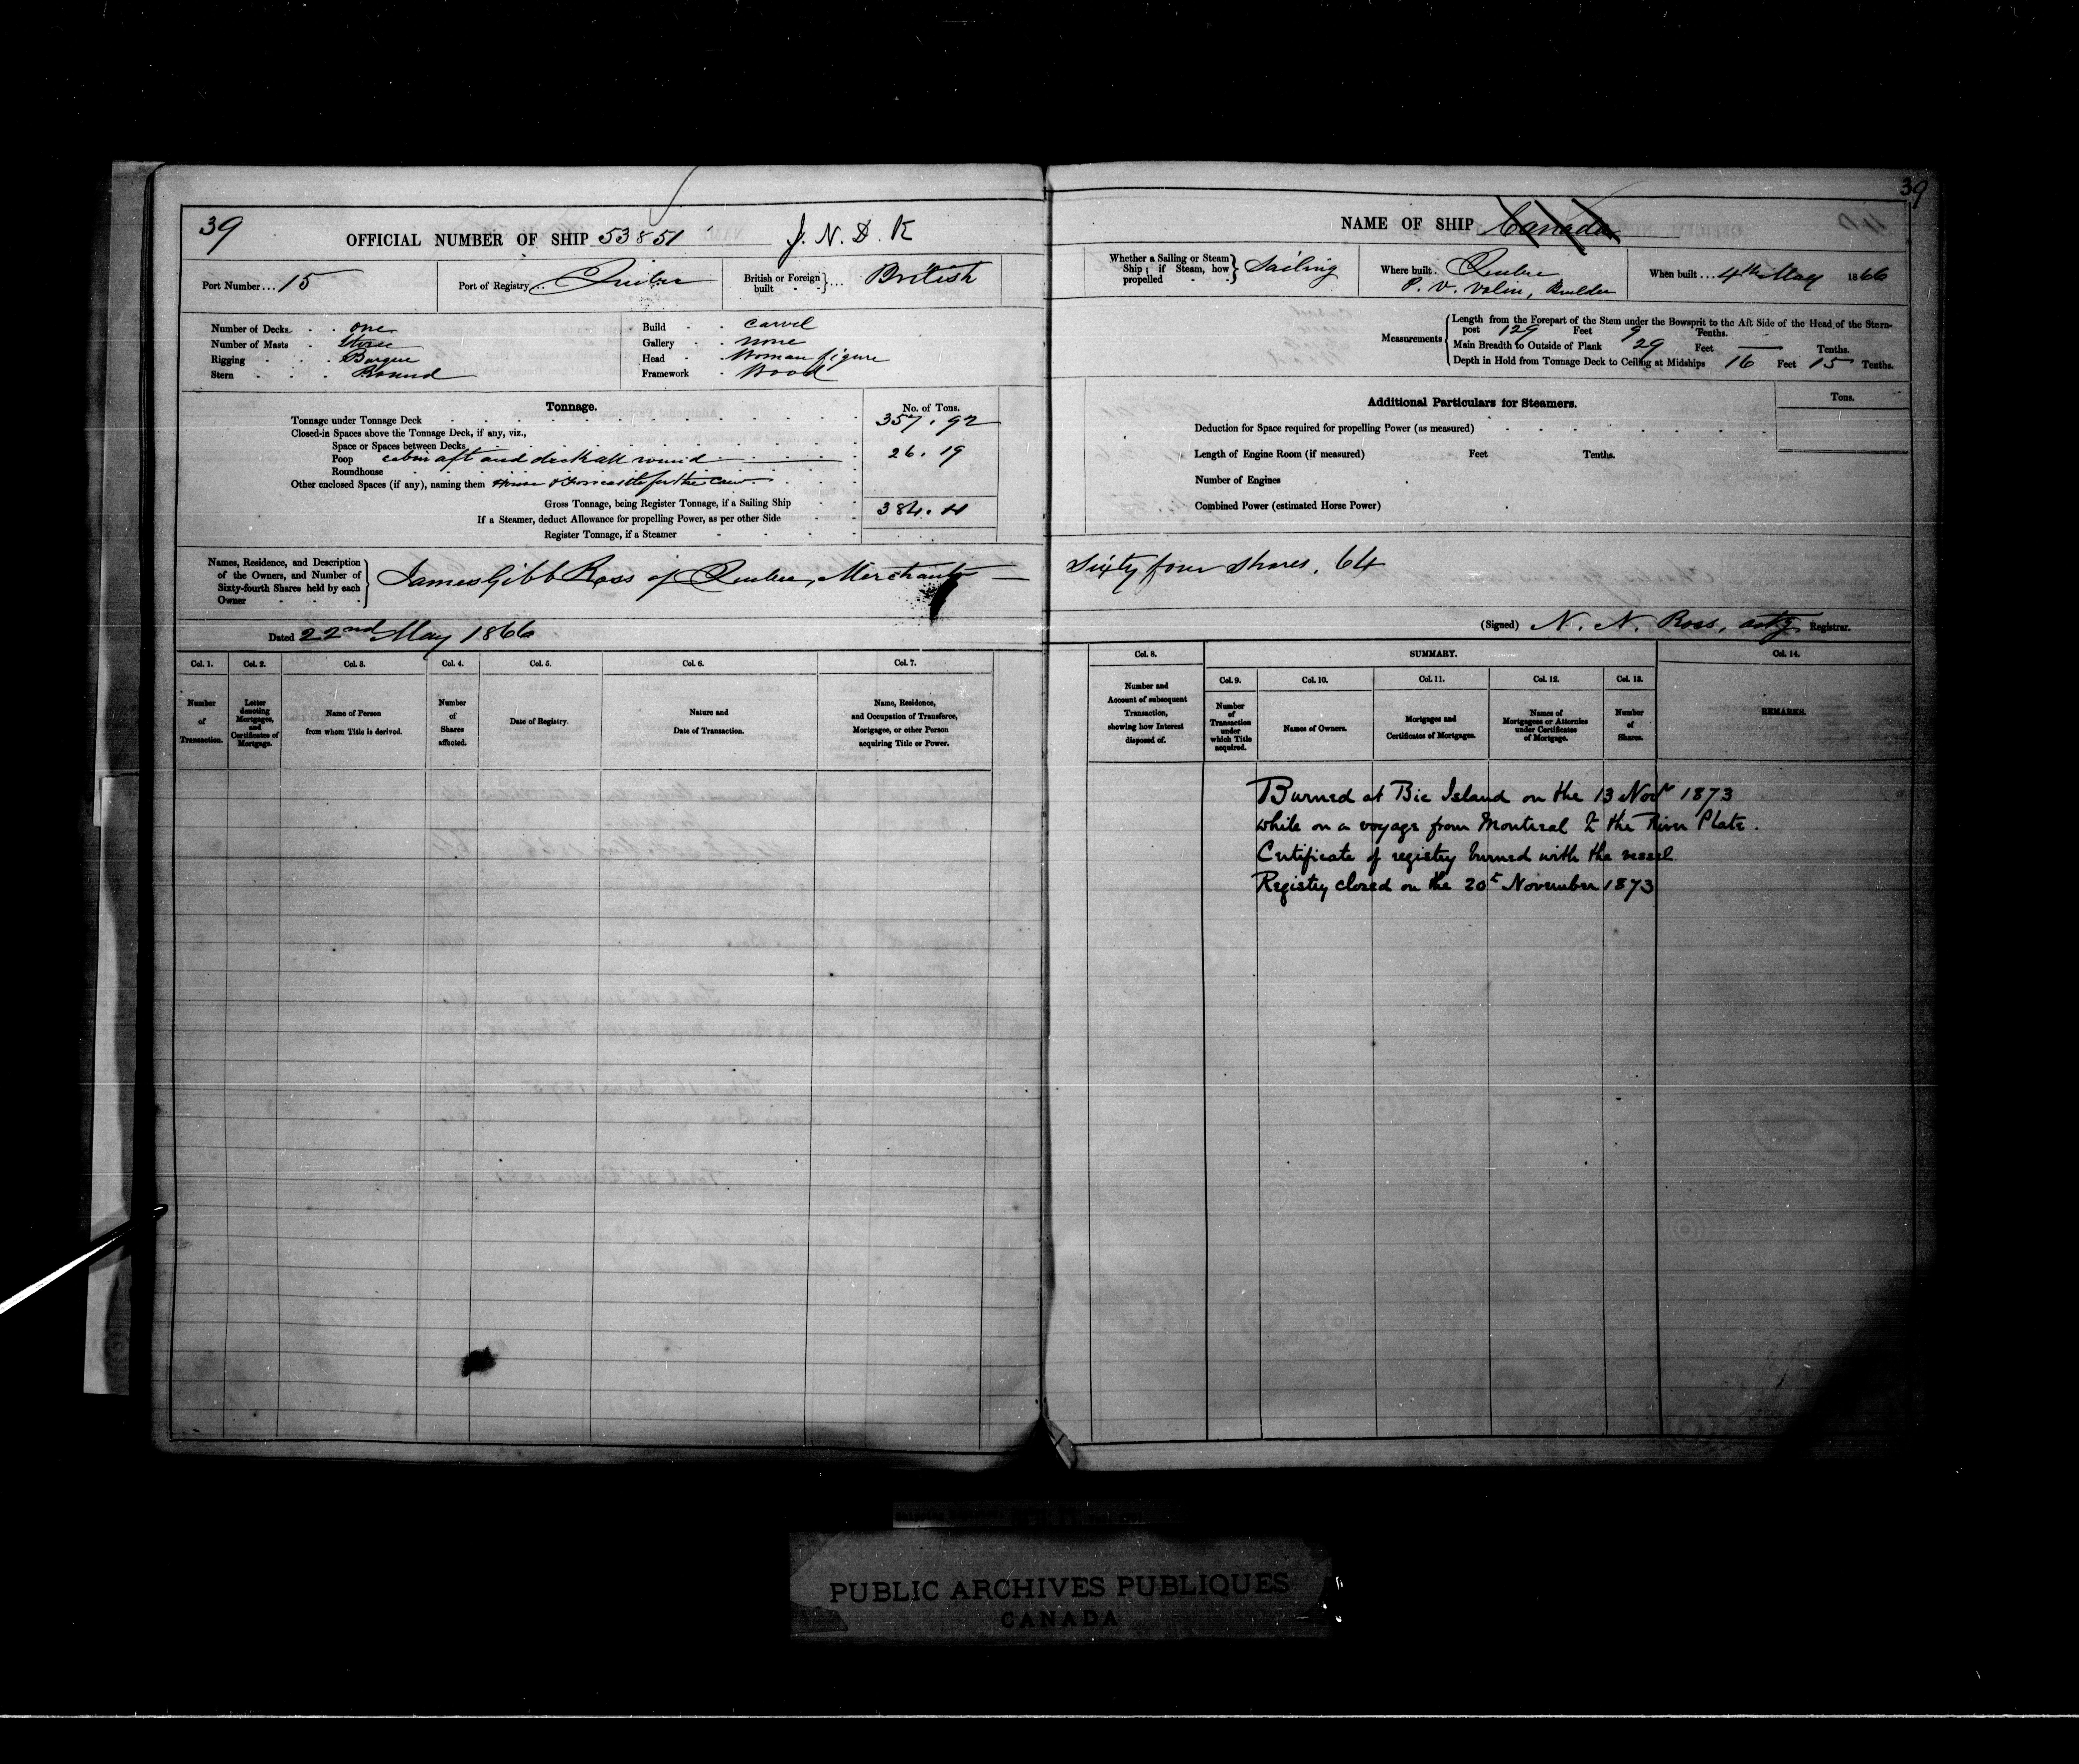 39
OFFICIAL NUMBER OF SHIP 53851
J. N. D. K
Port Number... 15
Port of Registry Quebec
British or Foreign built } ... British
Number of Decks . . one
Number of Masts . . three
Rigging . . Barque
Stern . . . Round
Build . . carvel
Gallery . . none
Head . . Woman figure
Framework . Wood
Tonnage.
No. of Tons.
Tonnage under Tonnage Deck 357.92
Closed-in Spaces above the Tonnage Deck, if any, viz.,
Space or Spaces between Decks
Poop cabin aft and deck all round 26.19
Roundhouse
Other enclosed Spaces (if any), naming them House & Forecastle for the crew
Gross Tonnage, being Register Tonnage, if a Sailing Ship 384.11
If a Steamer, deduct Allowance for propelling Power, as per other Side
Register Tonnage, if a Steamer
Names, Residence, and Description of the Owners, and Number of Sixty-fourth Shares held by each Owner } James Gibb Ross of Quebec, Merchant
Dated 22nd May 1866
Col. 1. Col. 2. Col. 3. Col. 4. Col. 5. Col. 6. Col. 7.
Number of Transaction.
Letter denoting Mortgages, and Certificates of Mortgage.
Name of Person from whom Title is derived.
Number of Shares affected.
Date of Registry.
Nature and Date of Transaction.
Name, Residence, and Occupation of Transferee, Mortgagee, or other Person acquiring Title or Power.
39
NAME OF SHIP Canada
Whether a Sailing or Steam Ship; if Steam, how propelled } Sailing
Where built. Quebec
P. V. Valin, Builder
When built... 4th May 1866
Measurements
Length from the Forepart of the Stem under the Bowsprit to the Aft Side of the Head of the Stern-
post 129 Feet 9 Tenths.
Main Breadth to Outside of Plank 29 Feet — Tenths.
Depth in Hold from Tonnage Deck to Ceiling at Midships 16 Feet 15 Tenths.
Additional Particulars for Steamers.
Tons.
Deduction for Space required for propelling Power (as measured)
Length of Engine Room (if measured) Feet Tenths.
Number of Engines
Combined Power (estimated Horse Power)
Sixty four Shares. 64
(Signed) N. N. Ross, actg Registrar.
Col. 8. SUMMARY. Col. 14.
Col. 9. Col. 10. Col. 11. Col. 12. Col. 13.
Number and Account of subsequent Transaction, showing how Interest disposed of.
Number of Transaction under which Title acquired.
Names of Owners.
Mortgages and Certificates of Mortgages.
Names of Mortgagees or Attornies under Certificates of Mortgage.
Number of Shares.
REMARKS.
Burned at Bic Island on the 13 Novr 1873
while on a voyage from Montreal to the River Plate.
Certificate of registry burned with the vessel
Registry closed on the 20t November 1873
PUBLIC ARCHIVES PUBLIQUES
CANADA